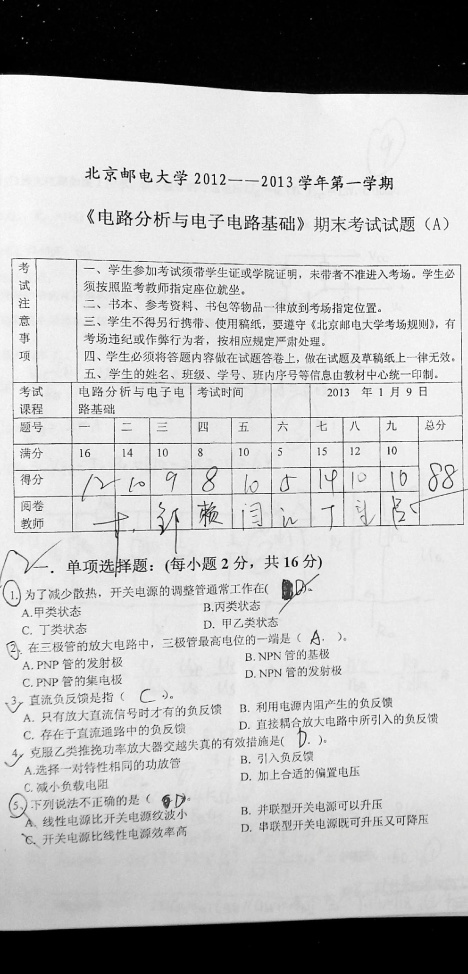 北京邮电大学 2012——2013 学年第一学期
《电路分析与电子电路基础》期末考试试题（A）
考试注意事项
一、学生参加考试须带学生证或学院证明，未带者不准进入考场。学生必
须按照监考教师指定座位就坐。
二、书本、参考资料、书包等物品一律放到考场指定位置。
三、学生不得另行携带、使用稿纸，要遵守《北京邮电大学考场规则》，有
考场违纪或作弊行为者，按相应规定严肃处理。
四、学生必须将答题内容做在试题答卷上，做在试题及草稿纸上一律无效。
五、学生的姓名、班级、学号、班内序号等信息由教材中心统一印制。
考试课程 电路分析与电子电路基础 考试时间 2013 年 1 月 9 日
题号 一 二 三 四 五 六 七 八 九 总分
满分 16 14 10 8 10 5 15 12 10
得分 12 10 9 8 10 5 14 10 10 88
阅卷教师
一．单项选择题：(每小题 2 分，共 16 分)
1. 为了减少散热，开关电源的调整管通常工作在( D )。
A.甲类状态 B.丙类状态
C. 丁类状态 D. 甲乙类状态
2. 在三极管的放大电路中，三极管最高电位的一端是（ A. ）。
A. PNP 管的发射极 B. NPN 管的基极
C. PNP 管的集电极 D. NPN 管的发射极
3. 直流负反馈是指（ C ）。
A. 只有放大直流信号时才有的负反馈 B. 利用电源内阻产生的负反馈
C. 存在于直流通路中的负反馈 D. 直接耦合放大电路中所引入的负反馈
4. 克服乙类推挽功率放大器交越失真的有效措施是( D. )。
A.选择一对特性相同的功放管 B. 引入负反馈
C. 减小负载电阻 D. 加上合适的偏置电压
5. 下列说法不正确的是（ D ）。
A. 线性电源比开关电源纹波小 B. 并联型开关电源可以升压
C. 开关电源比线性电源效率高 D. 串联型开关电源既可升压又可降压